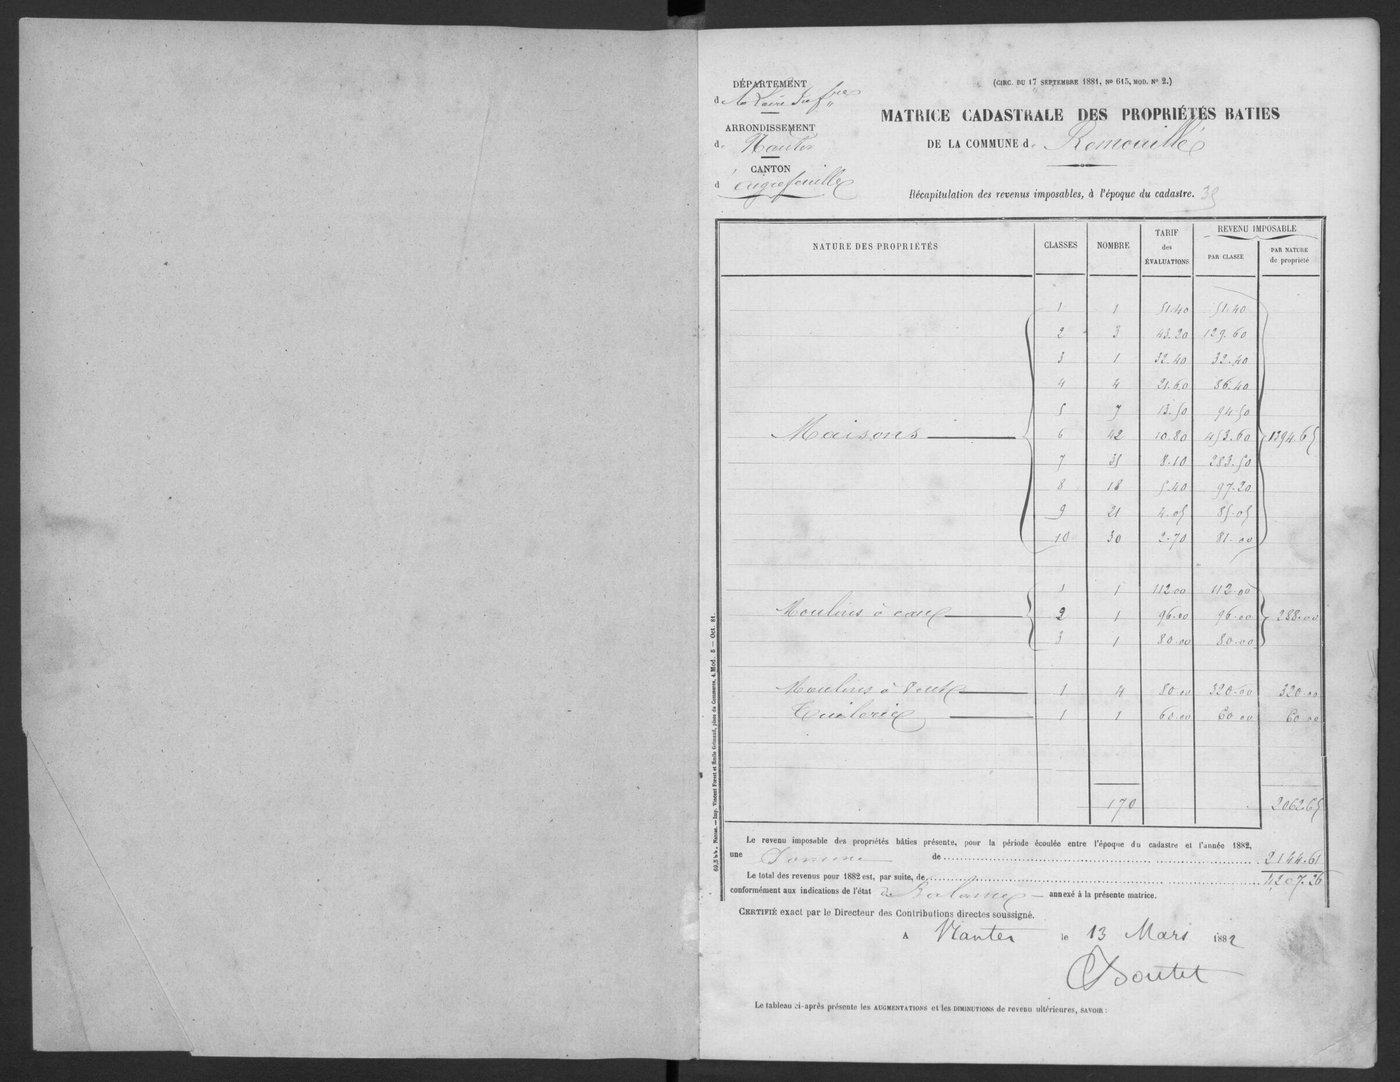 DÉPARTEMENT
de la Loire Infre
ARRONDISSEMENT
de Nantes
CANTON
d'Aigrefeuille
(CIRC. DU 17 SEPTEMBRE 1881, No 615, MOD. No 2.)
MATRICE CADASTRALE DES PROPRIÉTÉS BATIES
DE LA COMMUNE de Remouillé
Récapitulation des revenus imposables, à l'époque du cadastre. 35
NATURE DES PROPRIÉTÉS CLASSES NOMBRE TARIF des ÉVALUATIONS REVENU IMPOSABLE
PAR CLASSE PAR NATURE de propriété
1 1 51.40 51.40
2 3 43.20 129.60
3 1 32.40 32.40
4 4 21.60 86.40
5 7 13.50 94.50
Maisons 6 42 10.80 453.60 1394.65
7 35 8.10 283.50
8 18 5.40 97.20
9 21 4.05 85.05
10 30 2.70 81.00
1 1 112.00 112.00
Moulins à eau 2 1 96.00 96.00 288.00
3 1 80.00 80.00
Moulins à Vent 1 4 80.00 320.00 320.00
Tuilerie 1 1 60.00 60.00 60.00
170 2062.65
Le revenu imposable des propriétés bâties présente, pour la période écoulée entre l'époque du cadastre et l'année 1882,
une de 2144.61
Le total des revenus pour 1882 est, par suite, de 4207.26
conformément aux indications de l'état de Balance annexé à la présente matrice.
CERTIFIÉ exact par le Directeur des Contributions directes soussigné.
A Nantes le 13 Mars 1882
Boutet
Le tableau ci-après présente les AUGMENTATIONS et les DIMINUTIONS de revenu ultérieures, SAVOIR :
Nantes. — Imp. Vincent Forest et Émile Grimaud, place du Commerce, 4. Mod. 5 — Oct. 81.